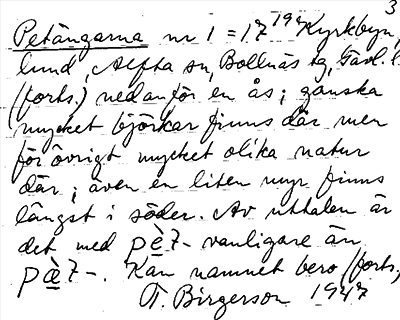 3
Petängarna nr 1 = 17 19⁴ Kyrkbyn,
lund, Alfta sn, Bollnäs tg, Gävl. l.
(forts.) nedanför en ås; ganska
mycket björkar finns där men
för övrigt mycket olika natur
där; även en liten myr finns
längst i söder. Av uttalen är
det med pè̱t- vanligare än
pæ̱̀t-. Kan namnet bero (forts.)
T. Birgerson 1947